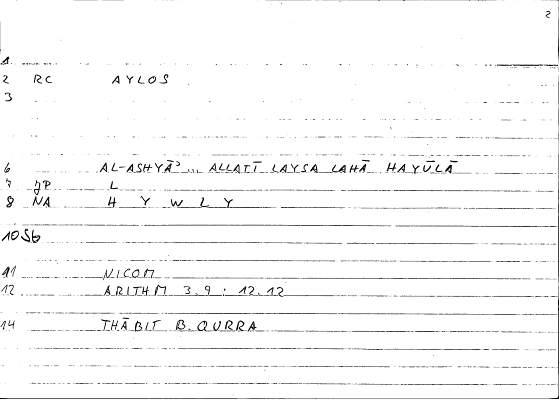 2
1
2 RC AYLOS
3
6 AL-ASHYĀʾ ... ALLATĪ LAYSA LAHĀ HAYŪLĀ
7 JP L
8 NA H Y W L Y
10 Sb
11 NICOM
12 ARITHM 3.9 : 12.12
14 THĀBIT B. QURRA